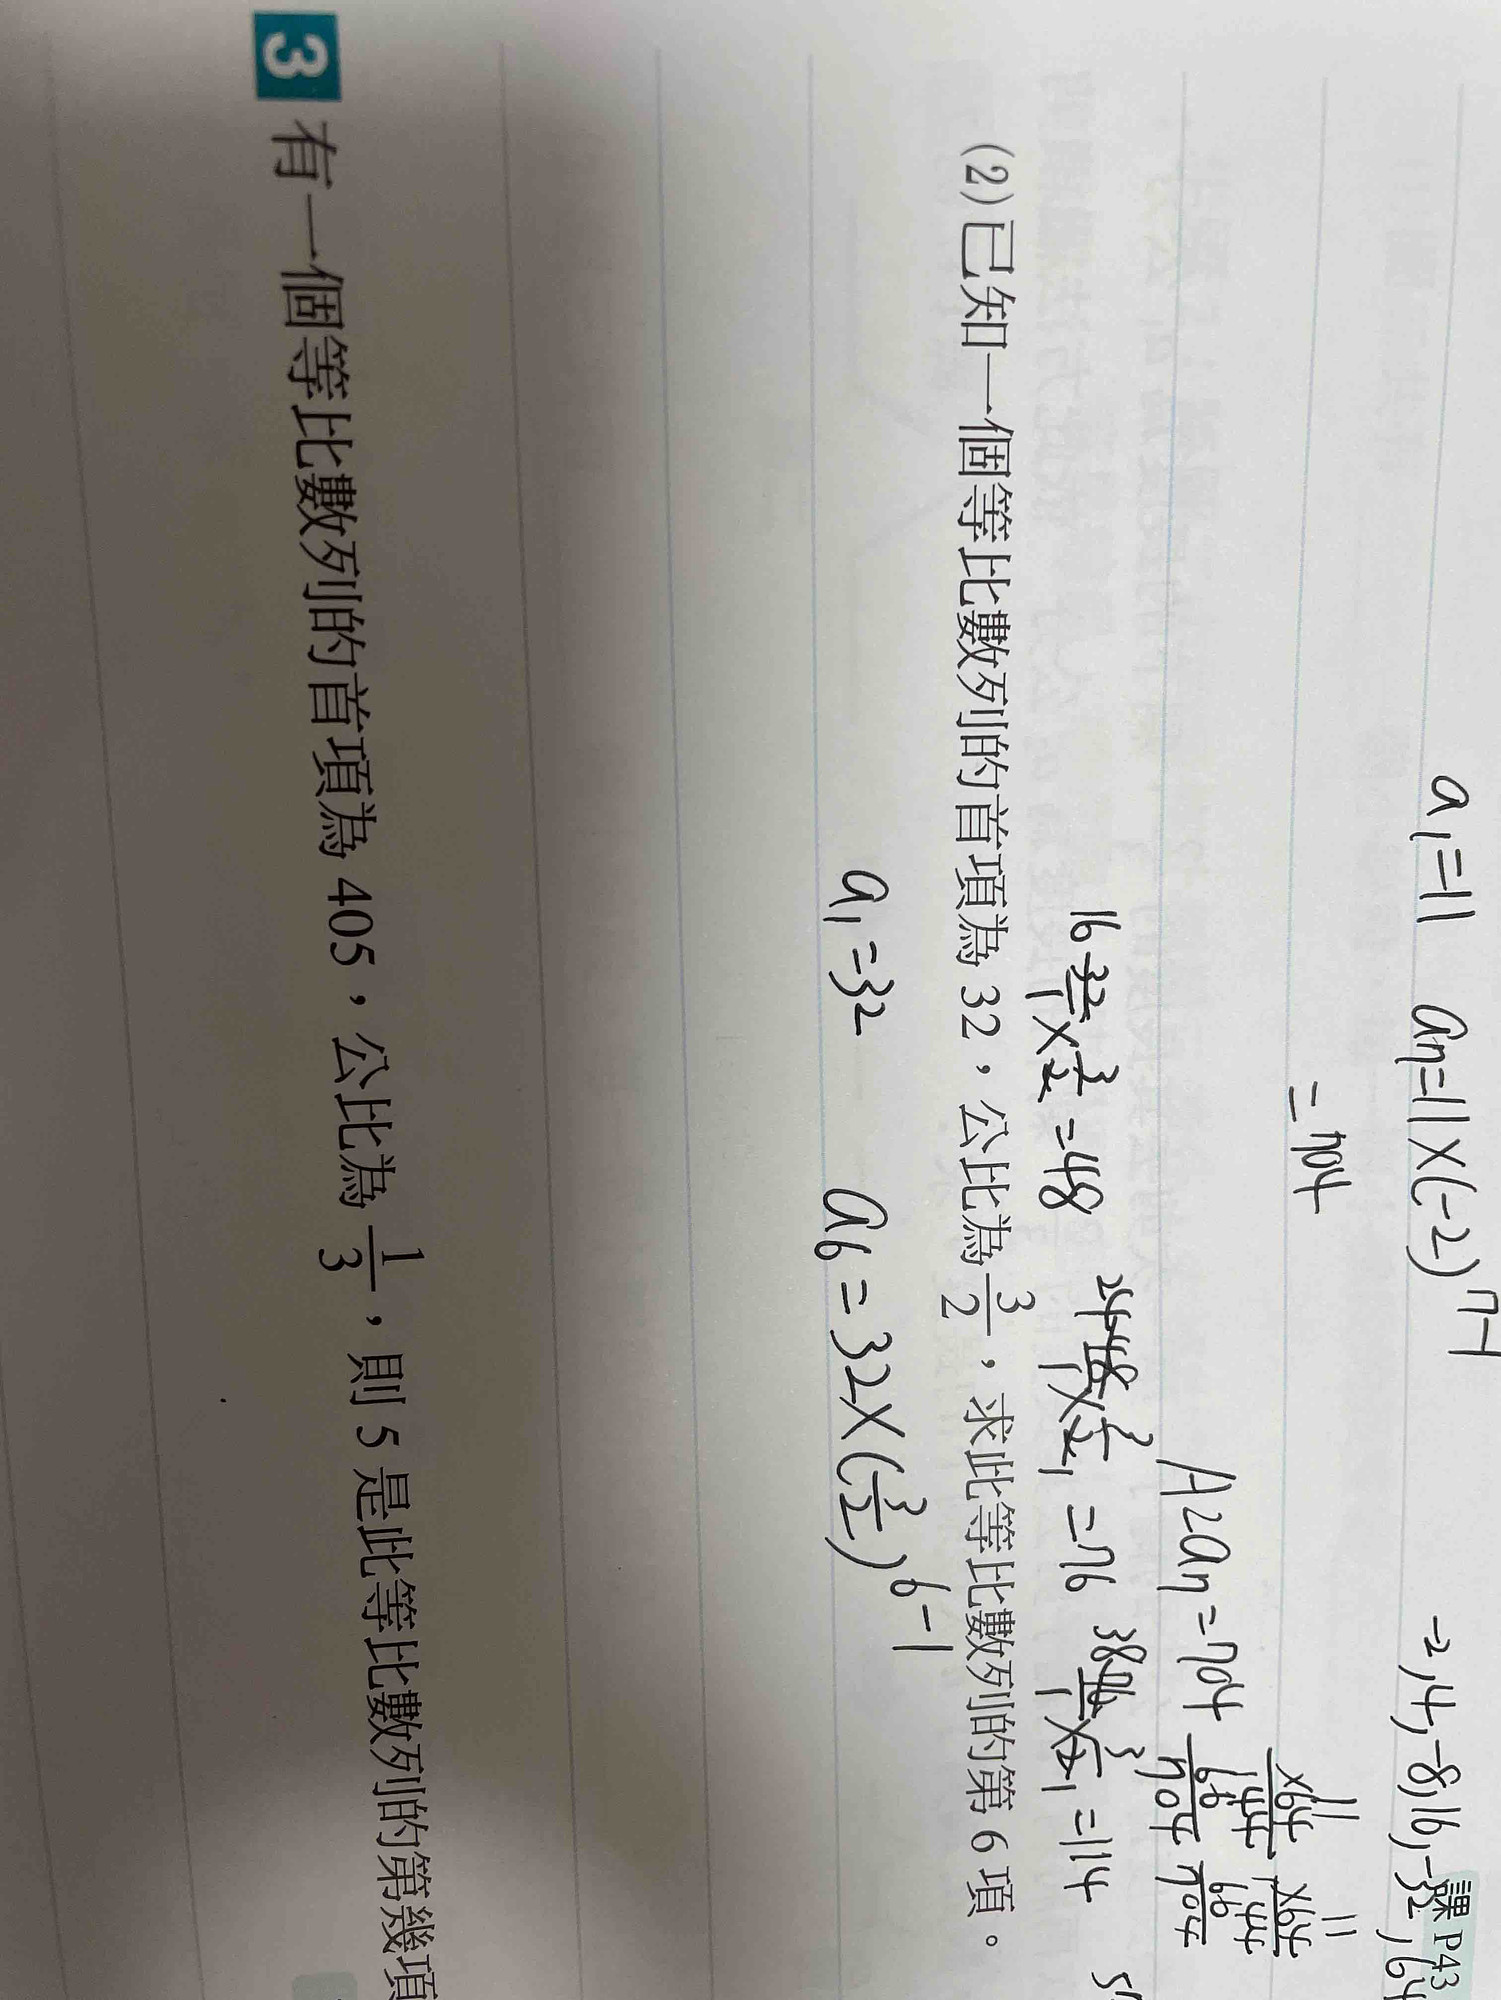 課 P43
a₁=11 aₙ=11×(-2)⁷⁻¹ -2,4,-8,16,-32,64
=704
11
×64
44
66
704
11
×64
44
66
704
A:aₙ=704
16 32/1×3/2=48 24 48/1×3/2 1=76 38 76/1×3/2 1=114
(2)已知一個等比數列的首項為 32,公比為 3/2,求此等比數列的第 6 項。
a₁=32 a₆=32×(3/2)⁶⁻¹
3 有一個等比數列的首項為 405,公比為 1/3,則 5 是此等比數列的第幾項